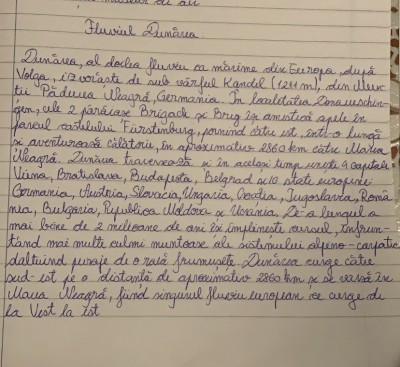 Fluviul Dunărea
Dunărea, al doilea fluviu ca mărime din Europa, după
Volga, izvoraște de sub vârful Kandel (1241m), din Mun-
ții Pădurea Neagră, Germania. În localitatea Donaueschin-
gen, cele 2 pâraiașe Brigach și Breg își amestică apele în
parcul castelului Fürstenburg, pornind către est, într-o lungă
și aventuroasă călătorie, în aproximativ 2860 km către Marea
Neagră. Dunărea traversează și în același timp unește 4 capitale:
Viena, Bratislava, Budapesta, Belgrad și 10 state europene:
Germania, Austria, Slovacia, Ungaria, Croația, Jugoslavia, Româ-
nia, Bulgaria, Republica Moldova și Ucraina. De-a lungul a
mai bine de 2 milioane de ani își împlinește cursul, înfrun-
tând mai multe culmi muntoase ale sistemului alpino-carpatic
dăltuind peisaje de o rară frumusețe. Dunărea curge către
sud-est pe o distanță de aproximativ 2860 km și se varsă în
Marea Neagră, fiind singurul fluviu european ce curge de
la Vest la Est